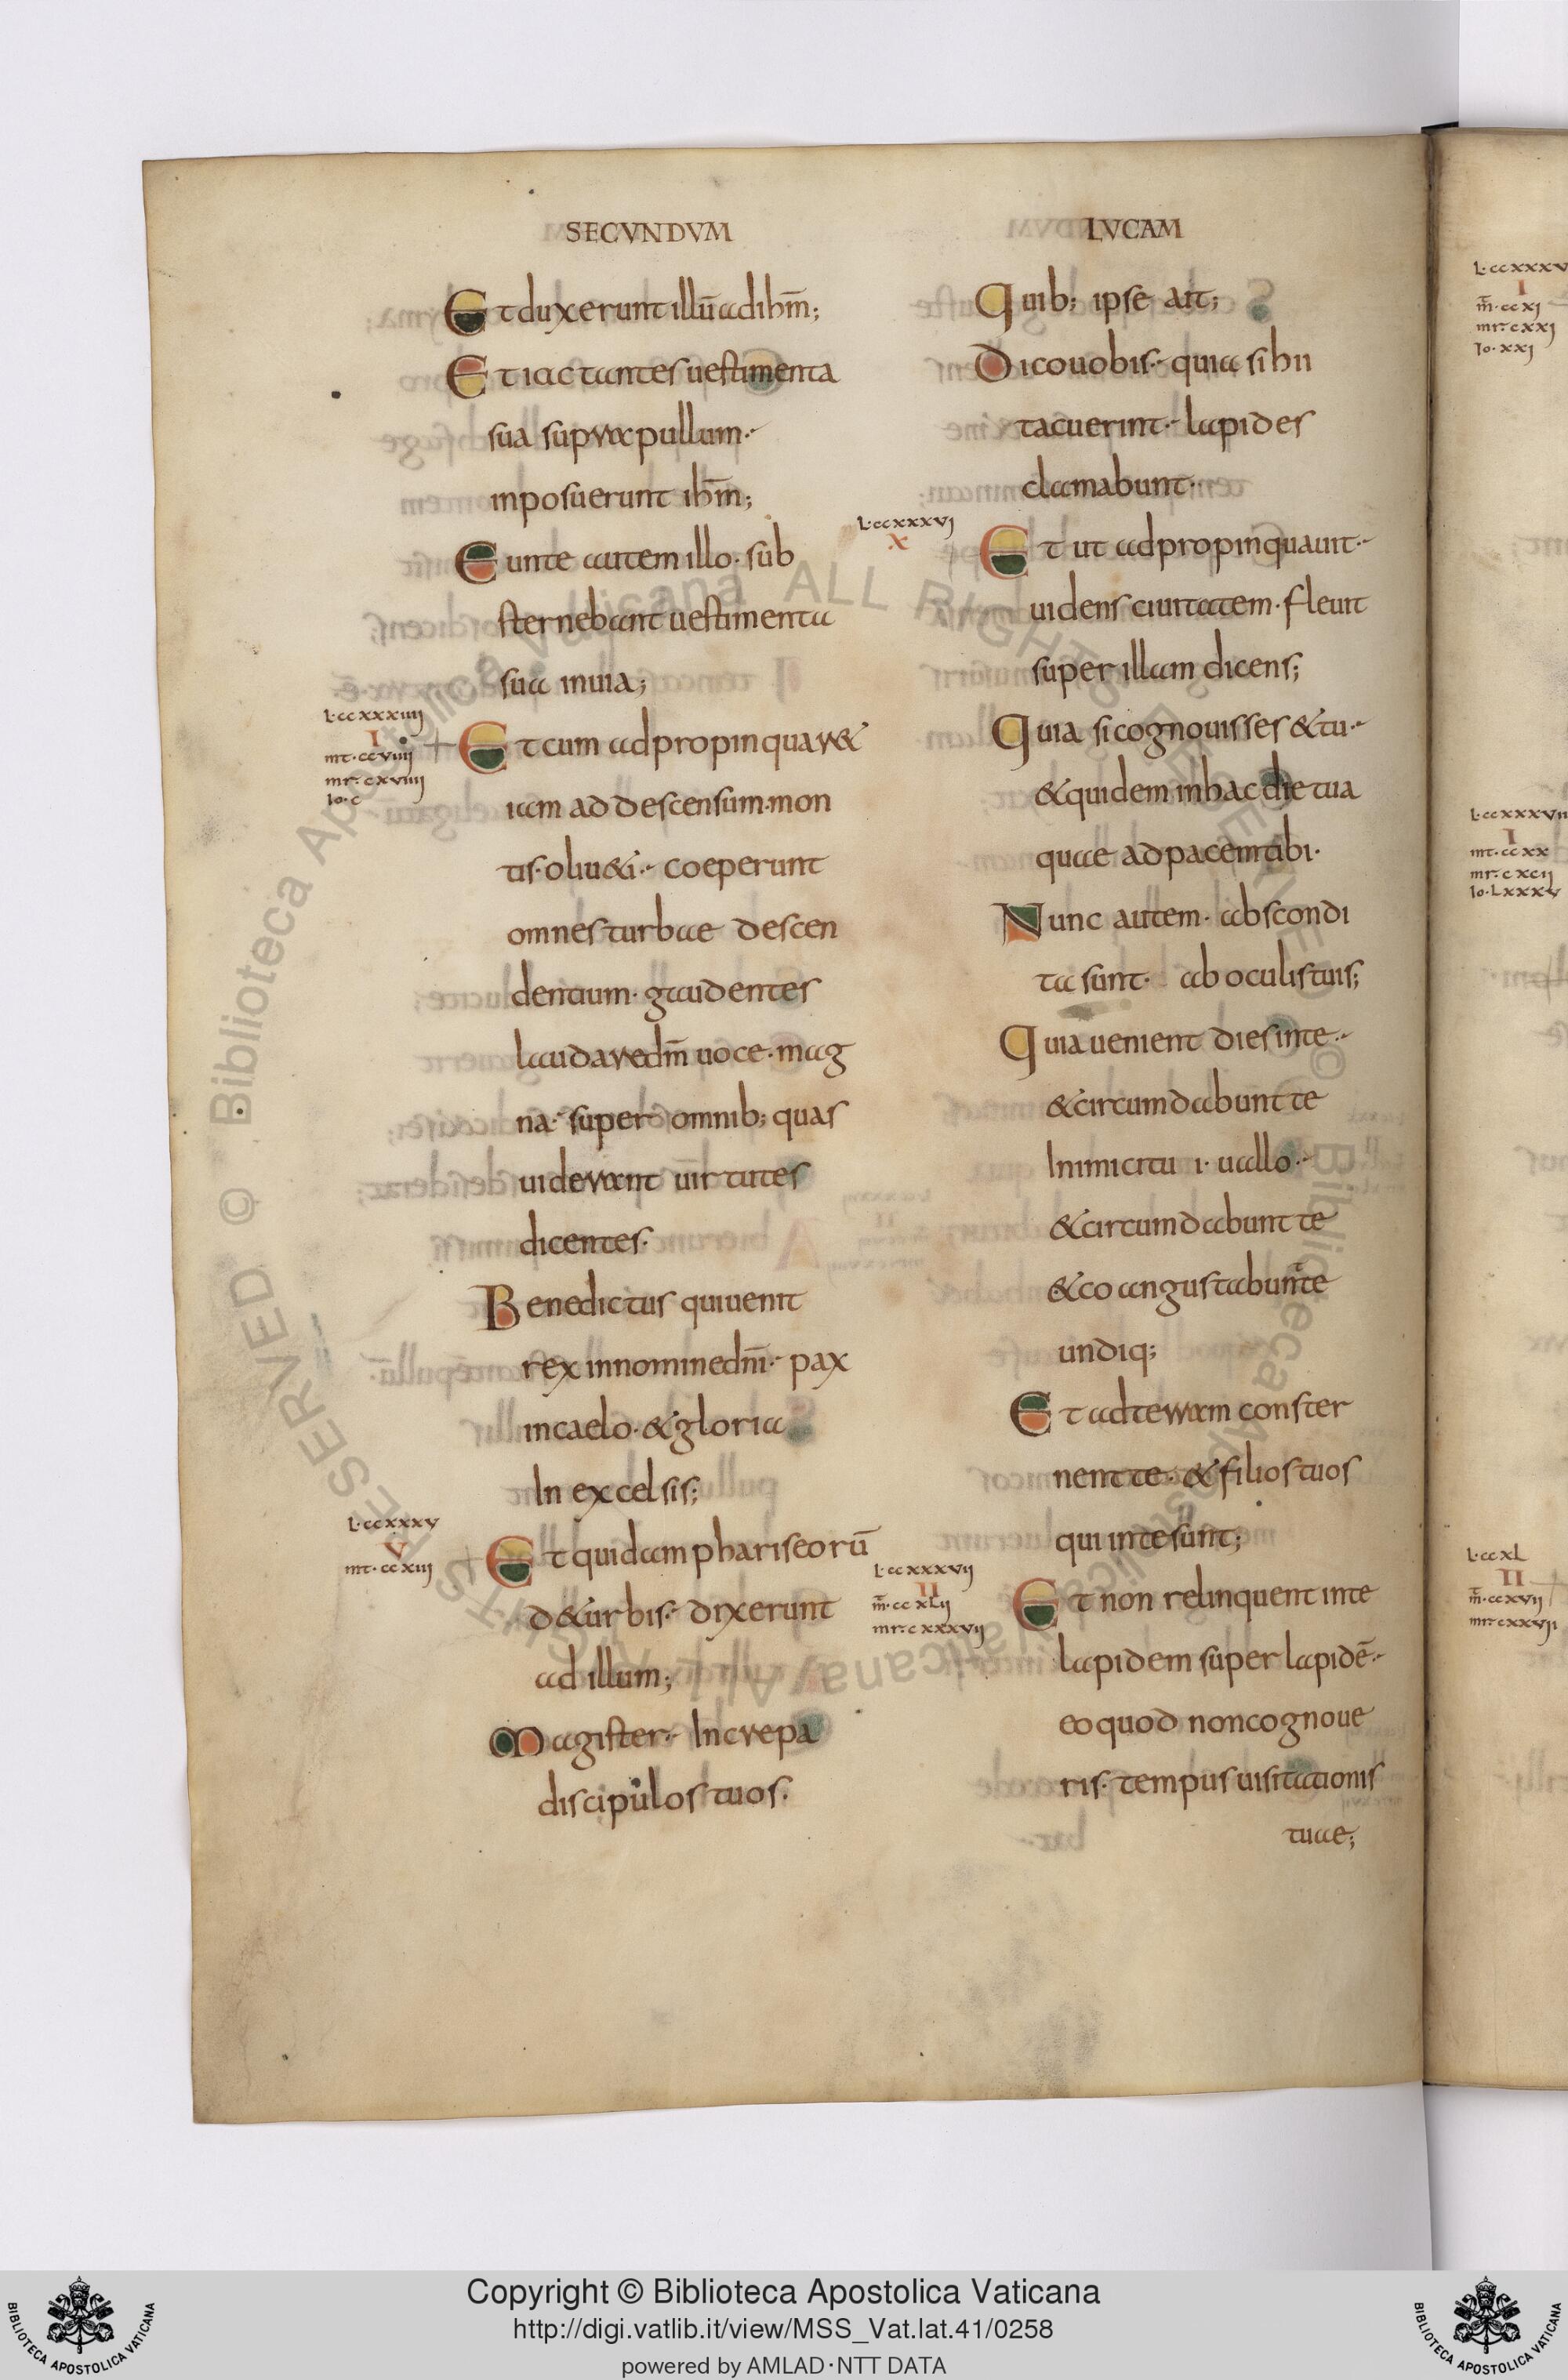 SECVNDVM
Et duxerunt illū ad ihm̄;
Et iactantes uestimenta
sua sup rapullum·
inposuerunt ihm̄;
Eunte autem illo· sub
sternebant uestimenta
sua inuia;
L·ccxxxiiij
I
mt·ccviiij
mr·cxviiij
Io·c
Et cum adpropinquar&
iam ad descensum·mon
tis·oliu&i· coeperunt
omnes turbae descen
dentium· gaudentes
laudare dm̄ uoce·mag
na· super omnib; quas
uiderant uirtutes
dicentes·
Benedictus qui uenit
rex innomine dn̄i· pax
incaelo·& gloria
In excelsis;
L·ccxxxv
V
mt·ccxiij
Et quidam phariseorū
d& urbis· dixerunt
ad illum;
Magister· Increpa
discipulos tuos·
LVCAM
Quib; ipse ait;
Dico uobis· quia si hii
tacuerint· lapides
clamabunt·
L·ccxxxvj
X
Et ut adpropinquauit·
uidens ciuitatem· fleuit
super illam dicens;
Quia si cognouisses & tu·
& quidem inhac die tua
quae ad pacem tibi·
Nunc autem· abscondi
ta sunt· ab oculis tuis;
Quia uenient dies inte·
& circumdabunt te
Inimici tu i· uallo·
& circumdabunt te
& coangustabunt te
undiq;
Et ad terram conster
nent te· & filios tuos
qui inte sunt;
L·ccxxxvij
II
m̄·ccxLij
mr·cxxxvij
Et non relinquent inte
lapidem super lapidē·
eo quod non cognoue
ris· tempus uisitationis
tuae;
L·ccxxxv
I
m̄·ccxj
mr·cxxj
Io·xxj
L·ccxxxvii
I
mt·ccxx
mr·cxcij
Io·Lxxxv
L·ccxL
II
m̄·ccxvij
mr·cxxvij
© Biblioteca Apostolica Vaticana ALL RIGHTS RESERVED
Copyright © Biblioteca Apostolica Vaticana
http://digi.vatlib.it/view/MSS_Vat.lat.41/0258
powered by AMLAD·NTT DATA
BIBLIOTECA APOSTOLICA VATICANA
BIBLIOTECA APOSTOLICA VATICANA